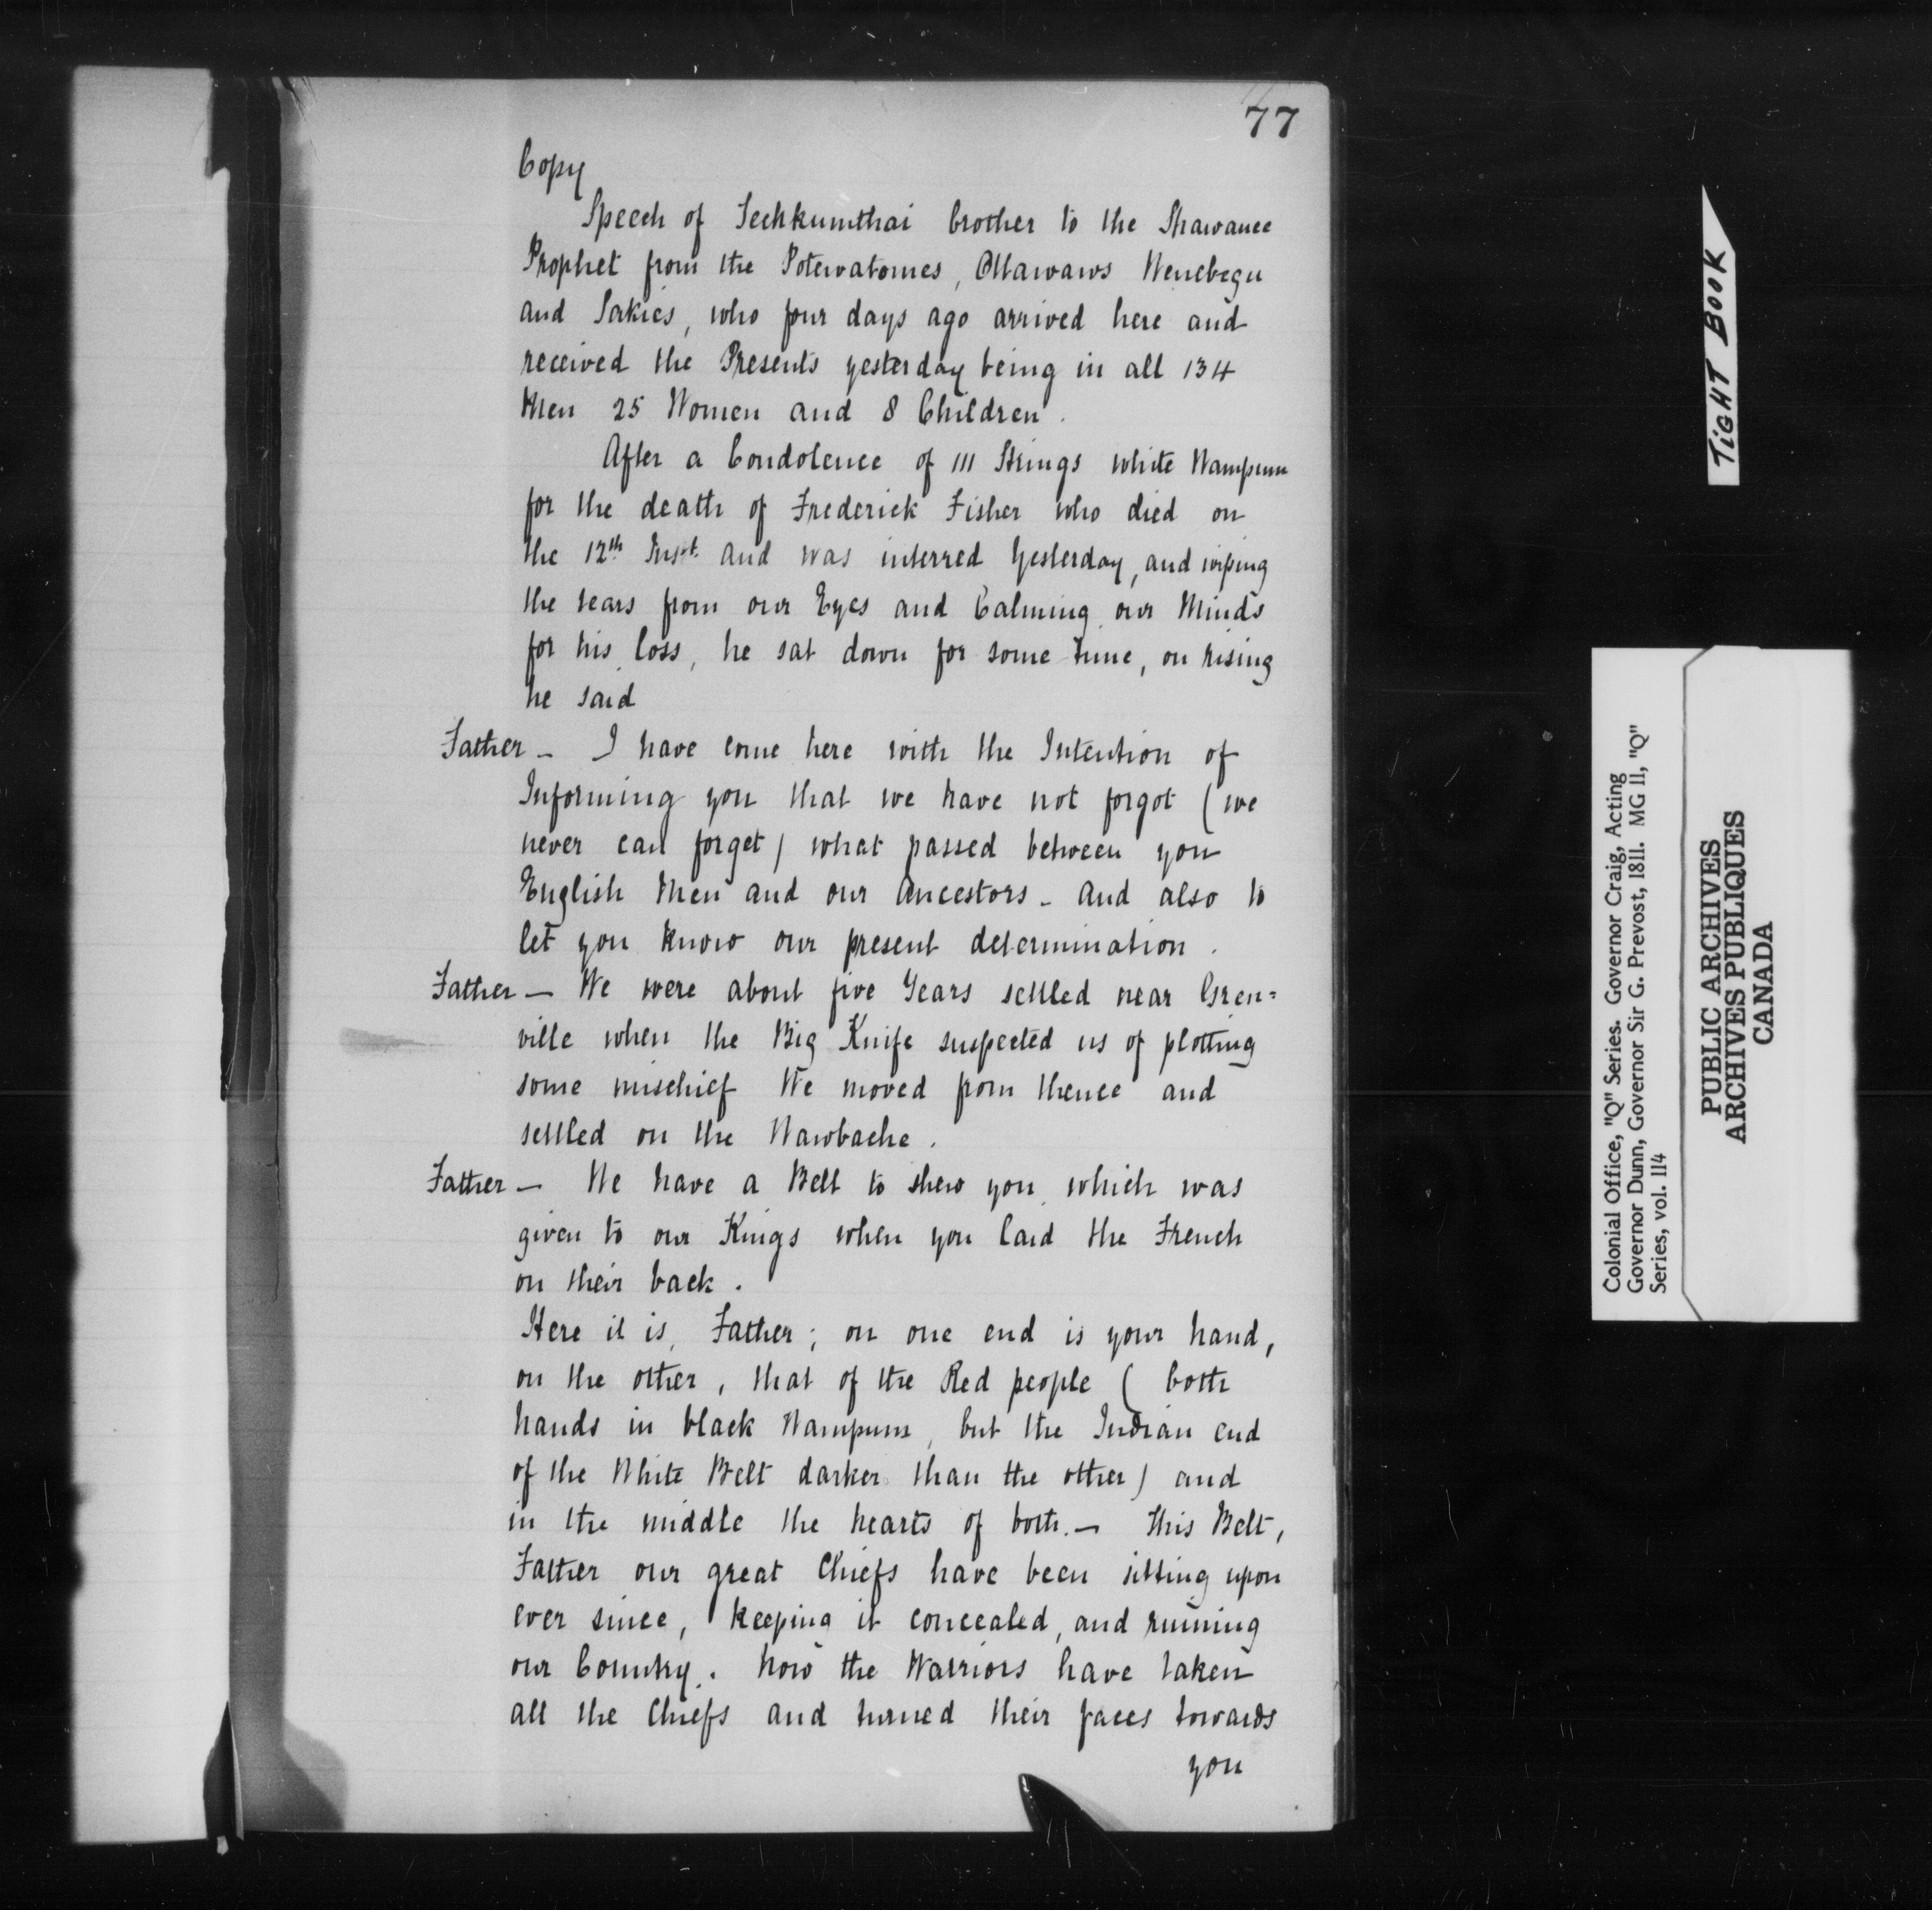 77
Copy
Speech of Teehkumthai brother to the Shawanee
Prophet from the Potewatomes, Ottawaws Wenebegu
and Sakies, who four days ago arrived here and
received the Presents yesterday being in all 134
Men 25 Women and 8 Children.
After a Condolence of 111 Strings white Wampum
for the death of Frederick Fisher who died on
the 12th Inst. and was interred Yesterday, and wiping
the tears from our Eyes and Calming our Minds
for his loss, he sat down for some time, on rising
he said
Father - I have come here with the Intention of
Informing you that we have not forgot (we
never can forget) what passed between you
English Men and our Ancestors - And also to
let you know our present determination.
Father - We were about five Years settled near Gren=
ville when the Big Knife suspected us of plotting
some mischief We moved from thence and
settled on the Wawbache.
Father - We have a Belt to shew you which was
given to our Kings when you laid the French
on their back.
Here it is, Father; on one end is your hand,
on the other, that of the Red people (both
hands in black Wampum, but the Indian end
of the White Belt darker than the other) and
in the middle the hearts of both. - This Belt,
Father our great Chiefs have been sitting upon
ever since, keeping it concealed, and ruining
our Country. Now the Warriors have taken
all the Chiefs and turned their faces towards
you
TIGHT BOOK
Colonial Office, "Q" Series. Governor Craig, Acting
Governor Dunn, Governor Sir G. Prevost, 1811. MG 11, "Q"
Series, vol. 114
PUBLIC ARCHIVES
ARCHIVES PUBLIQUES
CANADA